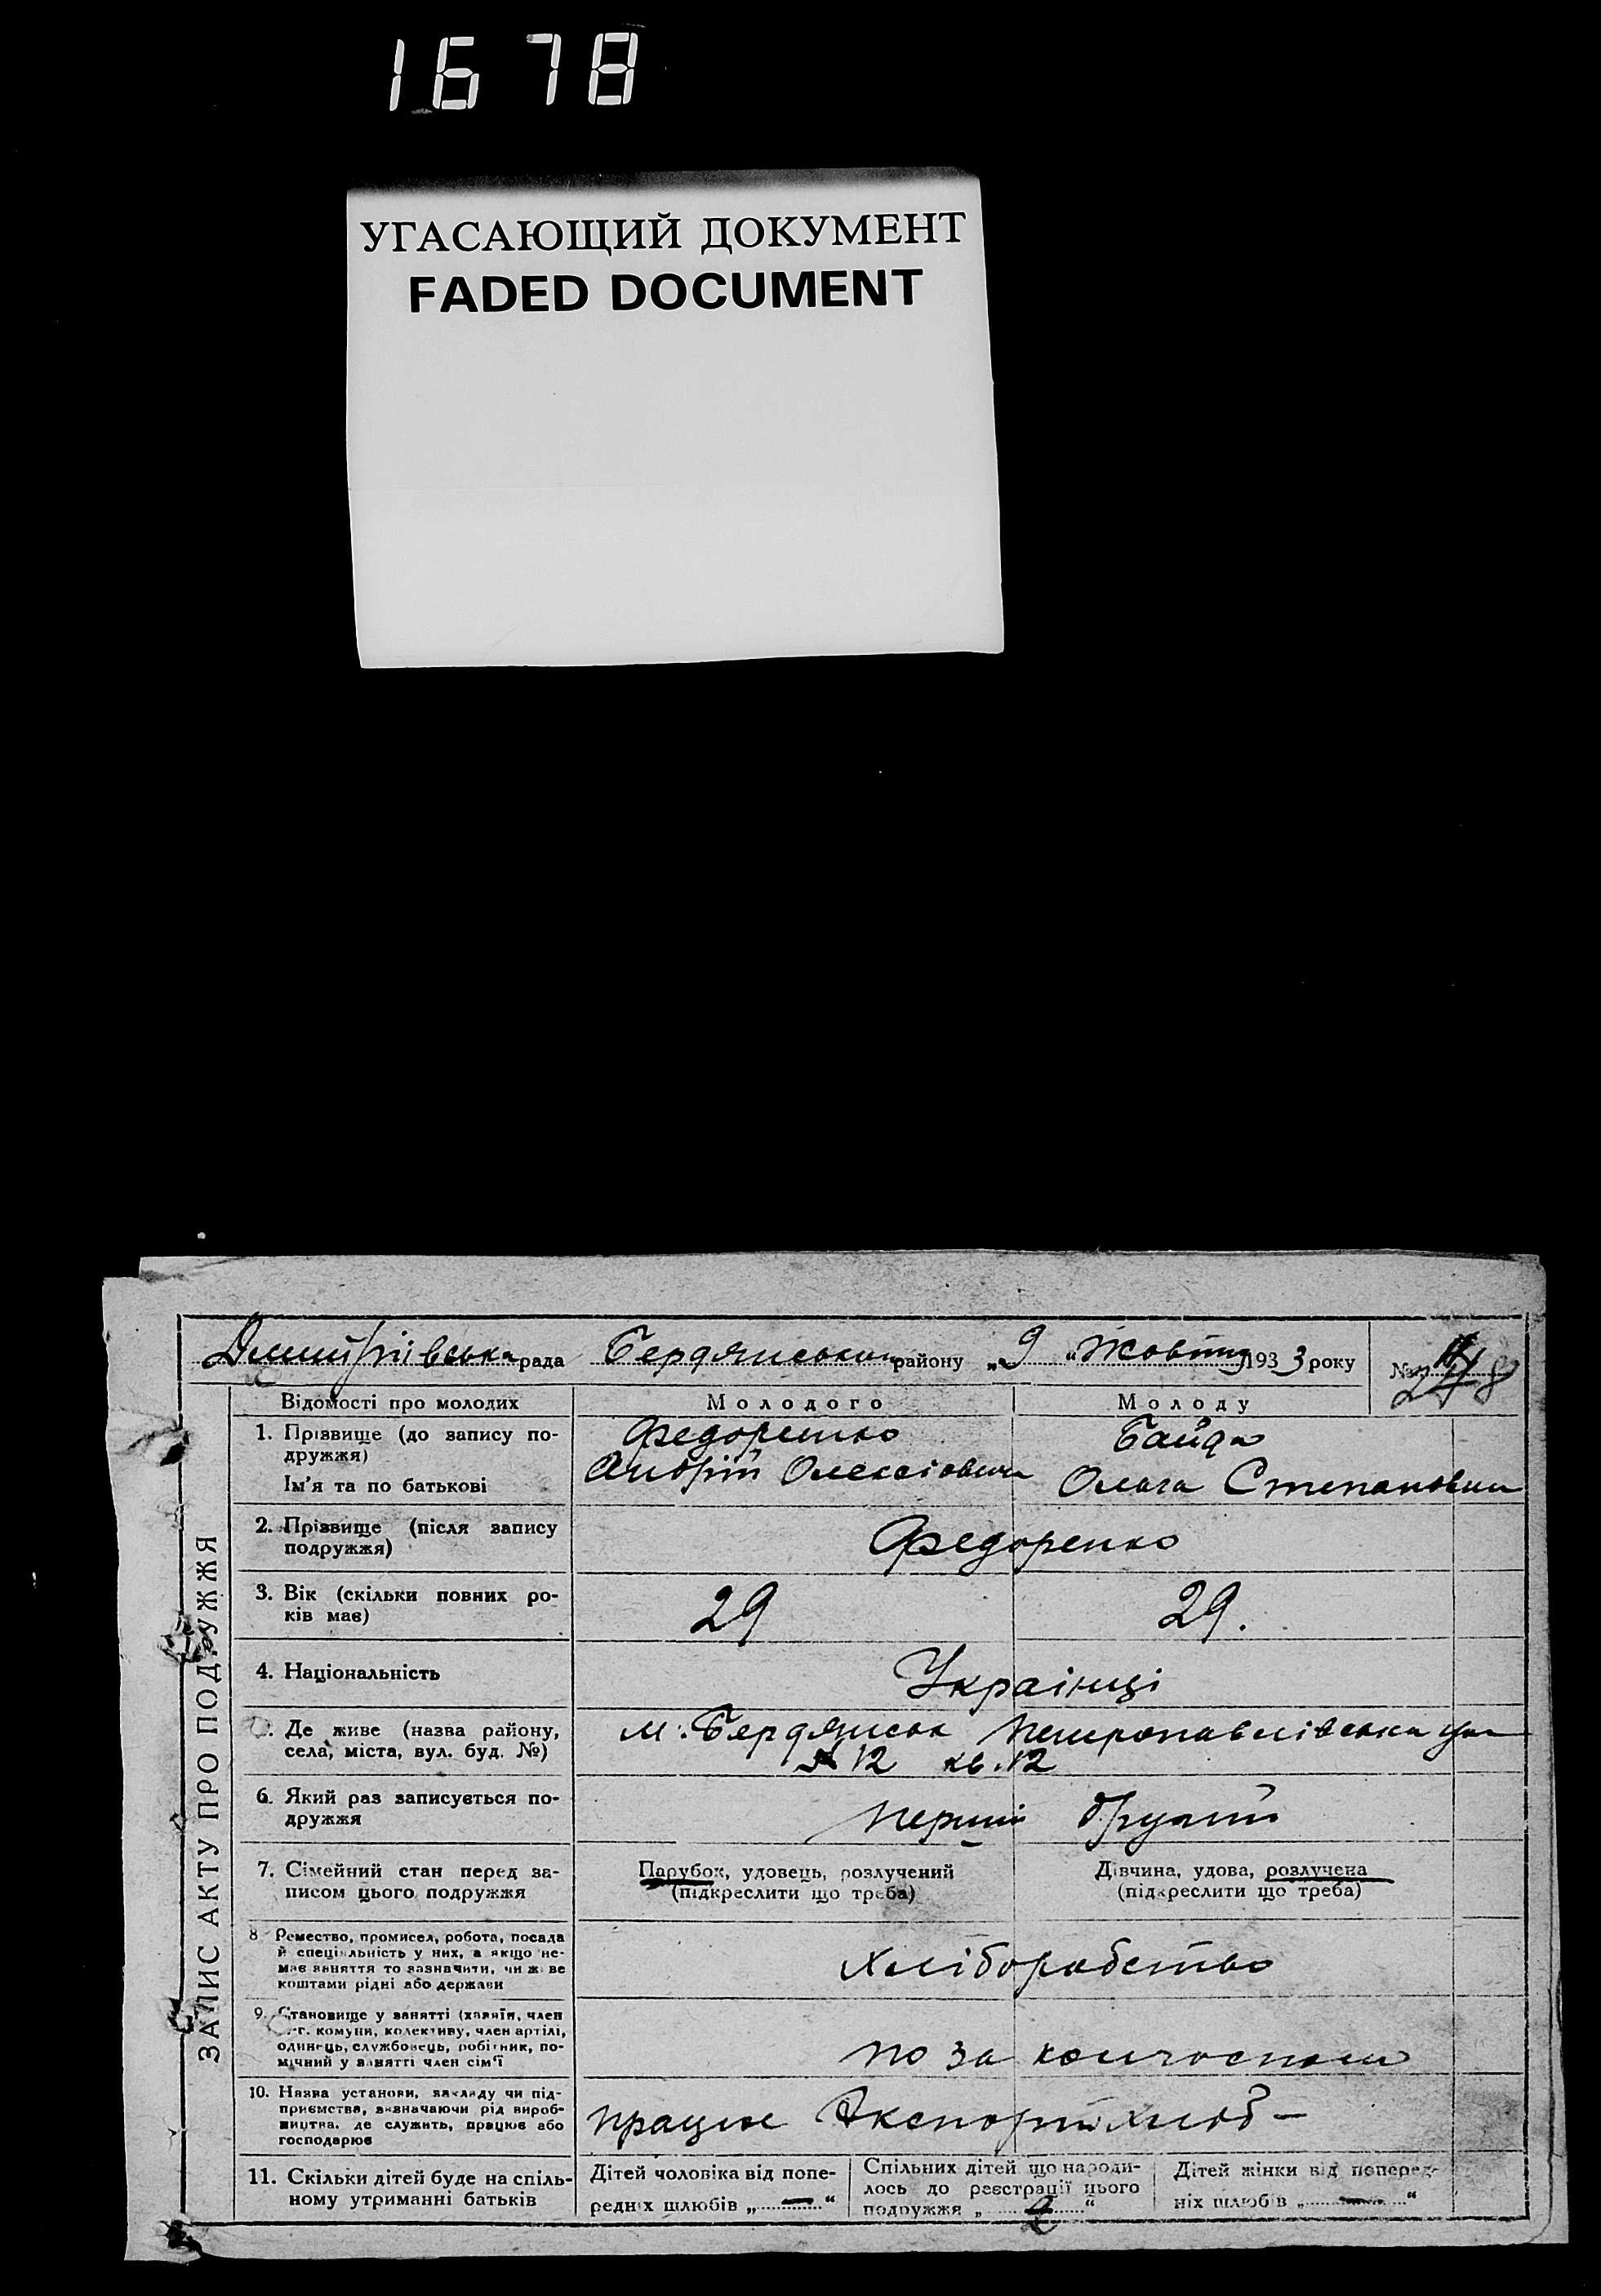 1678
УГАСАЮЩИЙ ДОКУМЕНТ
FADED DOCUMENT
Дмитріівська рада Бердянськ району „9“ Жовтня 1933 року №
ЗАПИС АКТУ ПРО ПОДРУЖЖЯ
Відомості про молодих Молодого Молоду
1. Прізвище (до запису по-
дружжя)
Ім'я та по батькові
Федоренко
Андрій Олексіович
Байда
Ольга Степановна
2. Прізвище (після запису
подружжя)
Федоренко
3. Вік (скільки повних ро-
ків має)
29 29.
4. Національність
Украінці
Де живе (назва району,
села, міста, вул. буд. №)
м. Бердянськ Петропавлівська ул
№ 12 кв. 12
6. Який раз записується по-
дружжя
перший другий
7. Сімейний стан перед за-
писом цього подружжя
Парубок, удовець, розлучений
(підкреслити що треба)
Дівчина, удова, розлучена
(підкреслити що треба)
8 Ремество, промисел, робота, посада
й спеціяльність у них, а якщо не-
має заняття то зазначити, чи живе
коштами рідні або держави
Хліборобство
9. Становище у занятті (хазяїн, член
с.-г. комуни, колективу, член артілі,
одинець, службовець, робітник, по-
мічний у занятті член сім'ї
по за колгоспом
10. Назва установи, закладу чи під-
приємства, зазначаючи рід вироб-
ництва, де служить, працює або
господарює
працює Экспортхлєб –
11. Скільки дітей буде на спіль-
ному утриманні батьків
Дітей чоловіка від попе-
редніх шлюбів „—“
Спільних дітей що народи-
лось до реєстрації цього
подружжя „“
Дітей жінки від поперед-
ніх шлюбів „—“